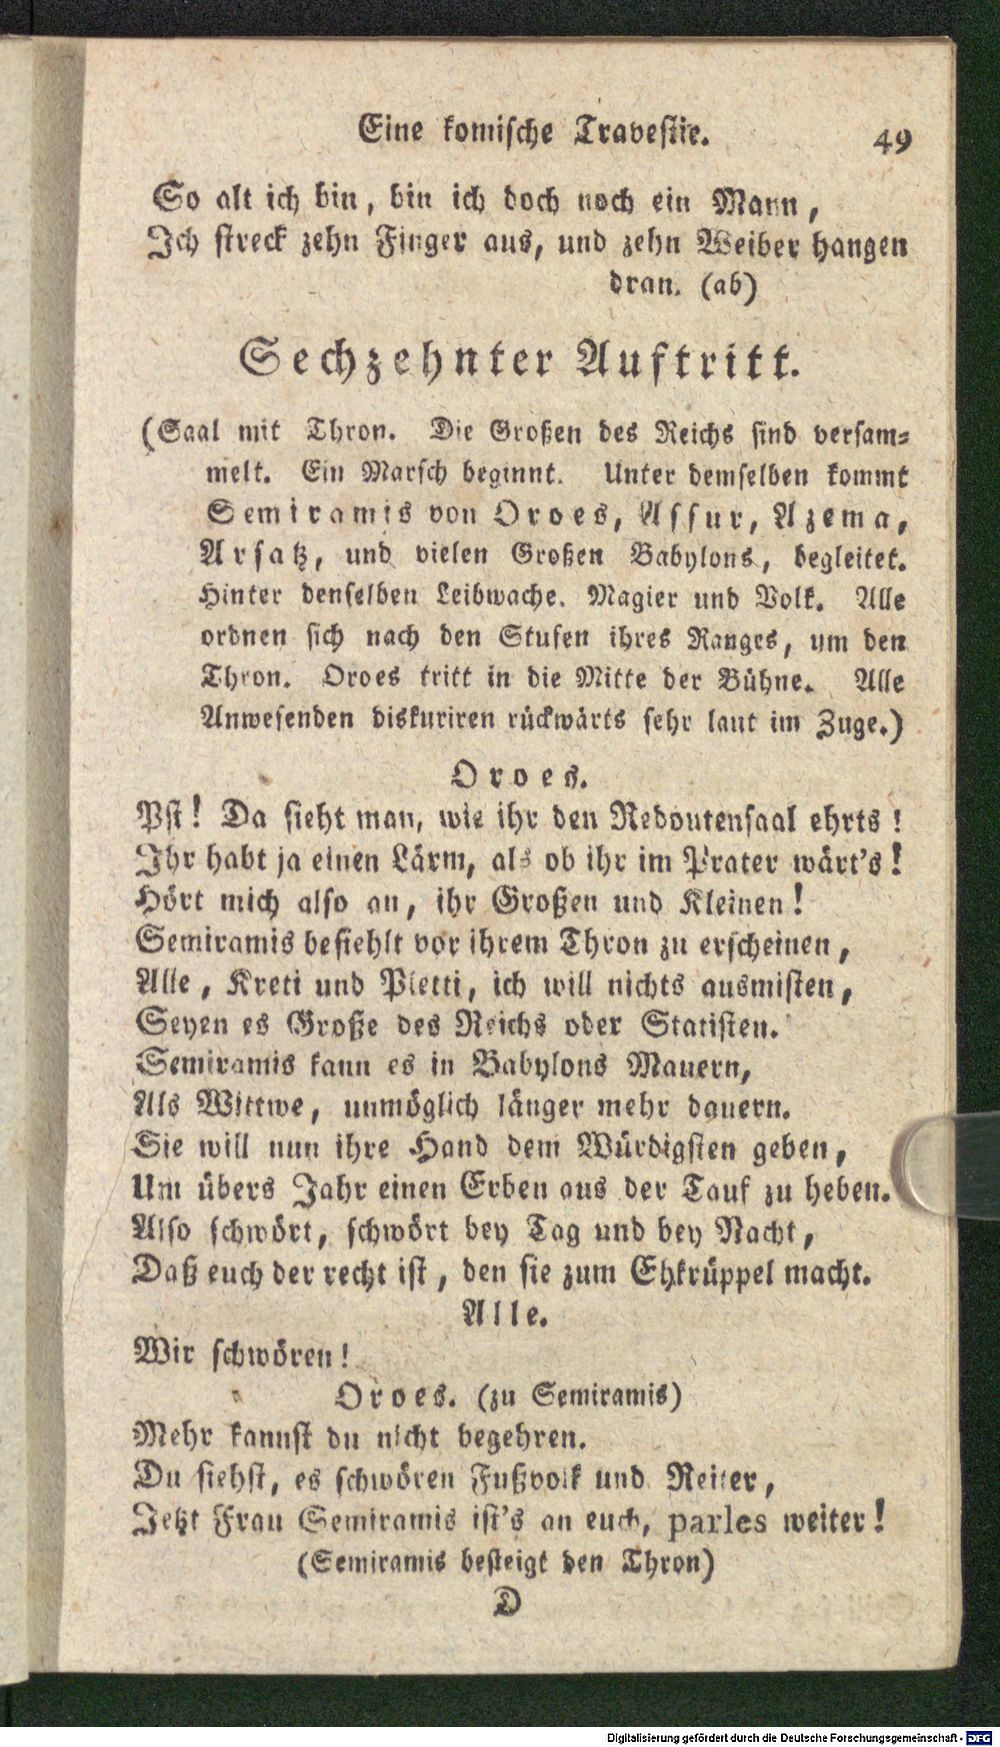 Eine komische Travestie. 49
So alt ich bin, bin ich doch noch ein Mann,
Ich streck zehn Finger aus, und zehn Weiber hangen
dran. (ab)
Sechzehnter Auftritt.
(Saal mit Thron. Die Großen des Reichs sind versam-
melt. Ein Marsch beginnt. Unter demselben kommt
Semiramis von Oroes, Assur, Azema,
Arsatz, und vielen Großen Babylons, begleitet.
Hinter denselben Leibwache. Magier und Volk. Alle
ordnen sich nach den Stufen ihres Ranges, um den
Thron. Oroes tritt in die Mitte der Bühne. Alle
Anwesenden diskuriren rückwärts sehr laut im Zuge.)
Oroes.
Pst! Da sieht man, wie ihr den Redoutensaal ehrts!
Ihr habt ja einen Lärm, als ob ihr im Prater wärt's!
Hört mich also an, ihr Großen und Kleinen!
Semiramis befiehlt vor ihrem Thron zu erscheinen,
Alle, Kreti und Pletti, ich will nichts ausmisten,
Seyen es Große des Reichs oder Statisten.
Semiramis kann es in Babylons Mauern,
Als Wittwe, unmöglich länger mehr dauern.
Sie will nun ihre Hand dem Würdigsten geben,
Um übers Jahr einen Erben aus der Tauf zu heben.
Also schwört, schwört bey Tag und bey Nacht,
Daß euch der recht ist, den sie zum Ehkrüppel macht.
Alle.
Wir schwören!
Oroes. (zu Semiramis)
Mehr kannst du nicht begehren.
Du siehst, es schwören Fußvolk und Reiter,
Jetzt Frau Semiramis ist's an euch, parles weiter!
(Semiramis besteigt den Thron)
D
Digitalisierung gefördert durch die Deutsche Forschungsgemeinschaft - DFG